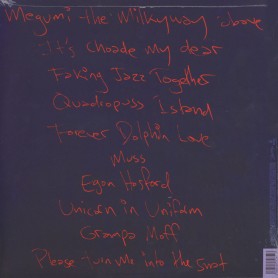 Megumi the Milkyway above
It's Choade My dear
Faking Jazz Together
Quadropuss Island
Forever Dolphin Love
Muss
Egon Hosford
Unicorn in Uniform
Grampa Moff
Please turn Me into the snat